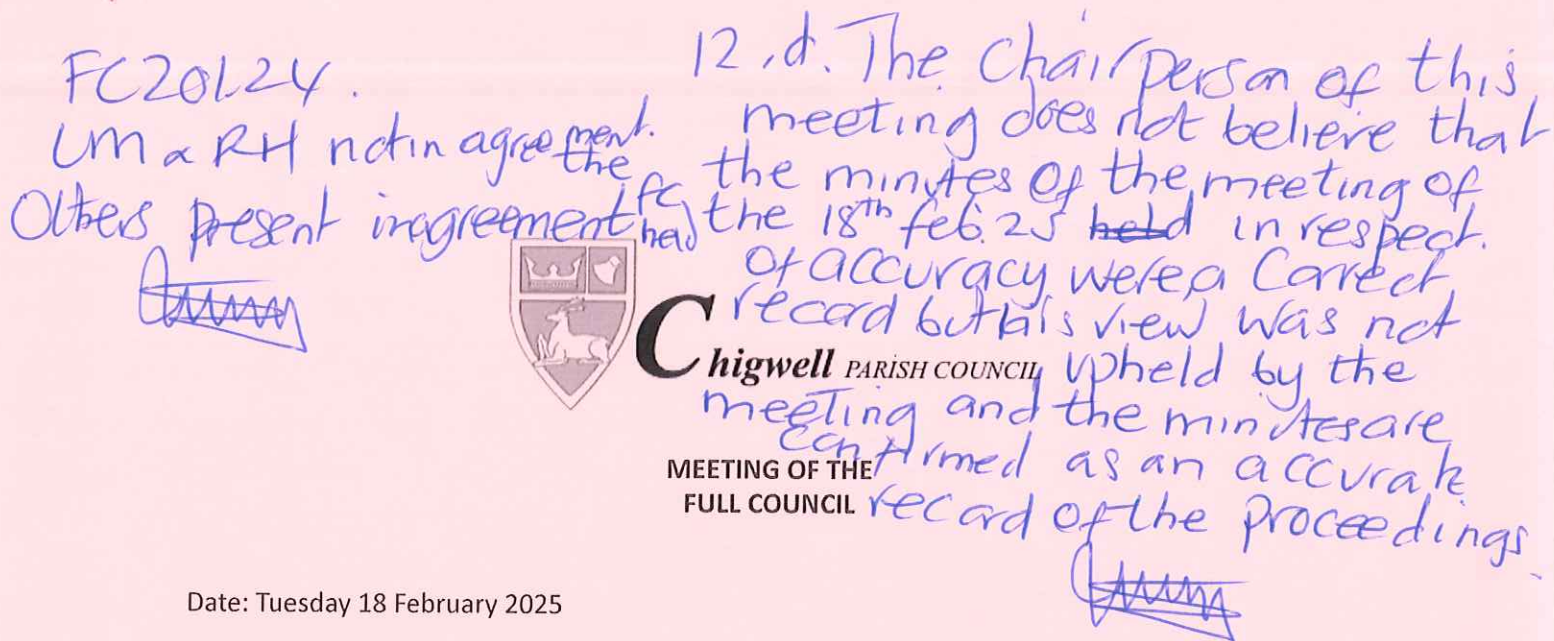 FC20124.
LM & RH not in agreement.
Others present in agreement the FC had
12.d. The Chairperson of this
meeting does not believe that
the minutes of the meeting of
the 18th feb. 25 held in respect.
of accuracy were a Correct
record but his view was not
upheld by the
meeting and the minutes are
confirmed as an accurate
record of the proceedings.
Chigwell PARISH COUNCIL
MEETING OF THE
FULL COUNCIL
Date: Tuesday 18 February 2025